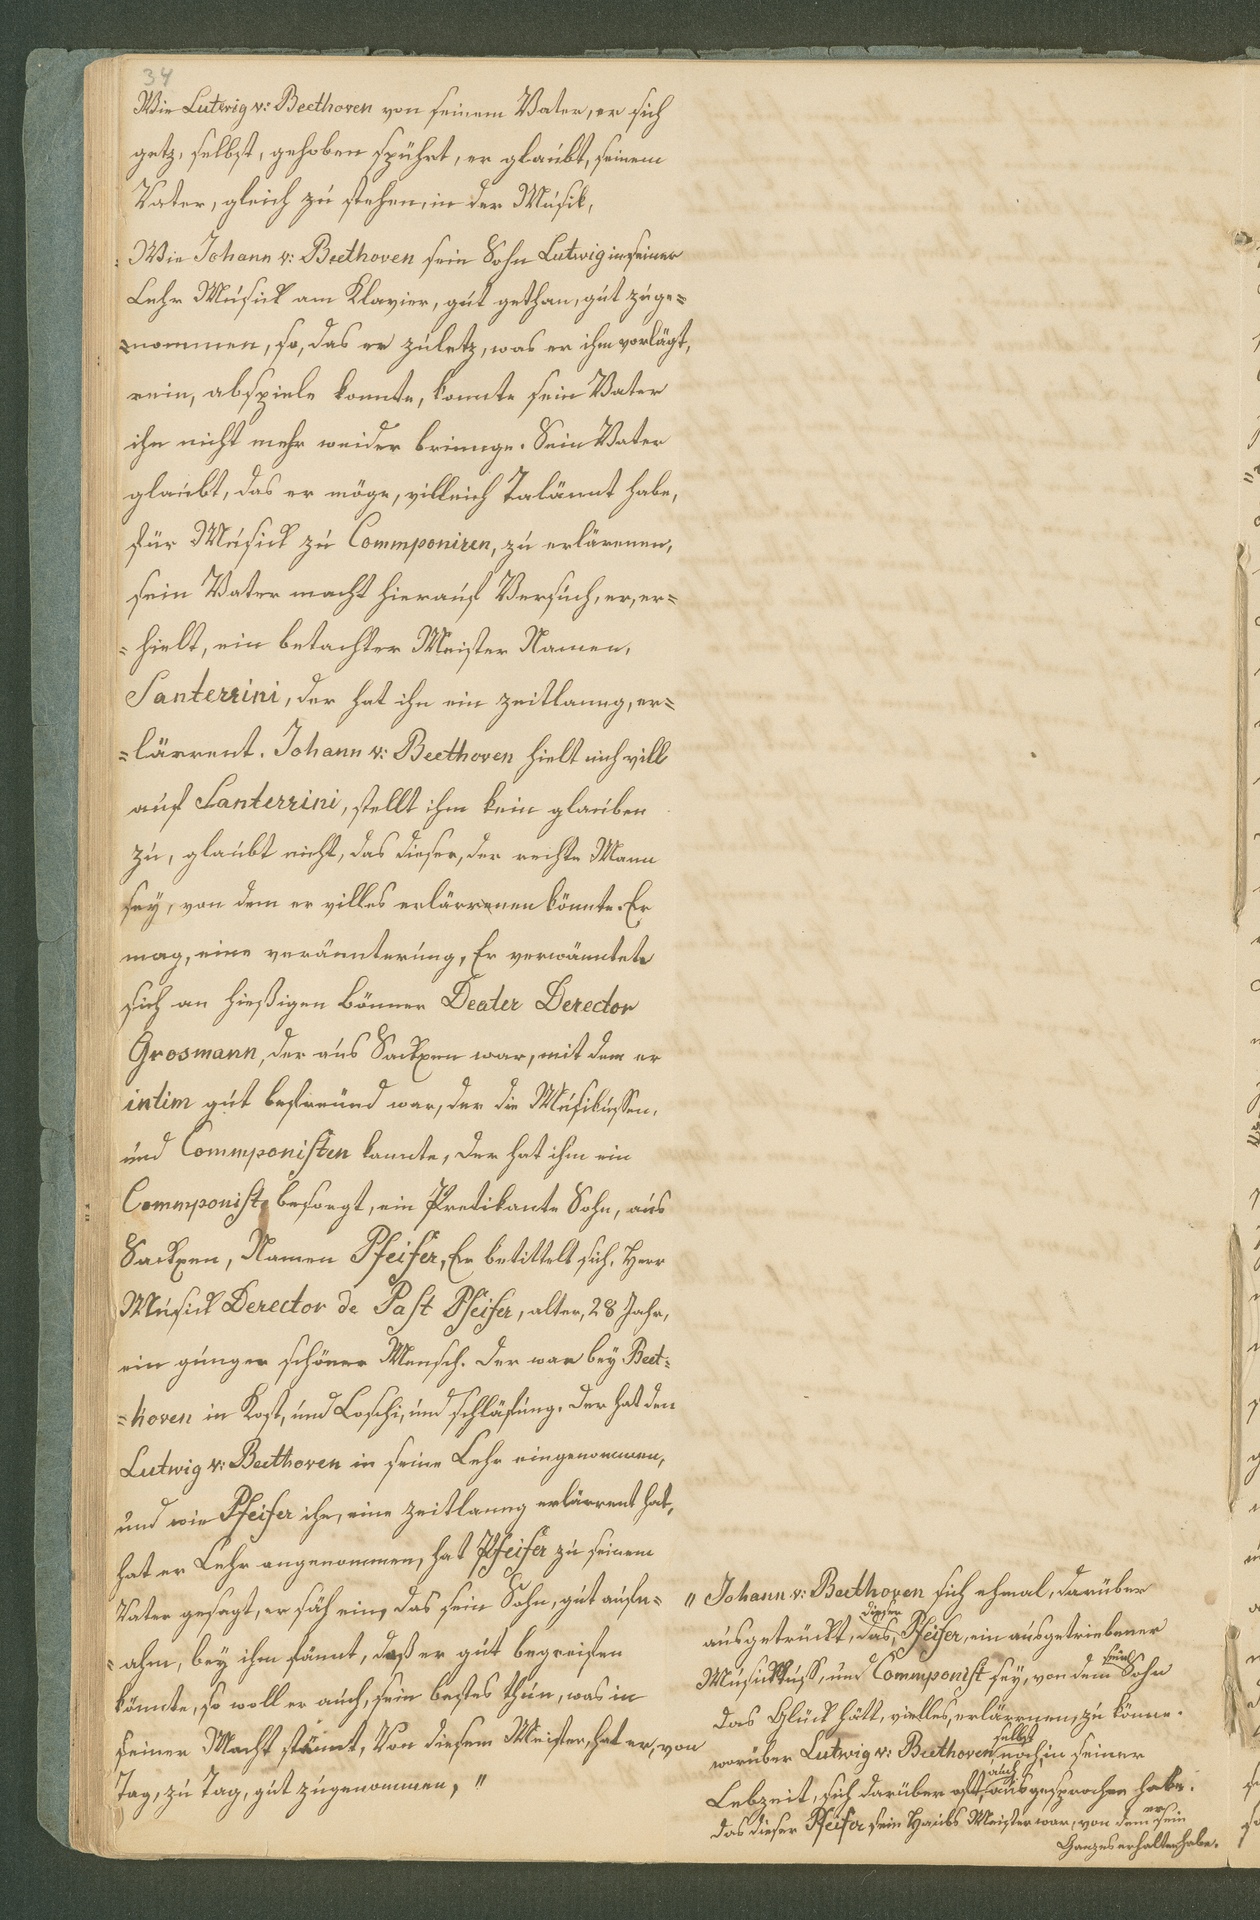 34
Wie Lutwig v: Beethoven von seinem Vater, er sich
getz, selbst, gehoben spührt, er glaubt, seinem
Vater, gleich zu stehen, in der Musik,
: Wie Johann v: Beethoven sein Sohn Lutwig in seiner
Lehr Musick am Klavier, gut gethan, gut zuge=
=nommen, so, das er zuletz, was er ihm vorlägt,
rein, abspiele konnte, konnte sein Vater
ihn nicht mehr weider brinnge. Sein Vater
glaubt, das er möge, villeich Talännt habe,
für Musick zu Commponiren, zu erlärenen,
sein Vater macht hierauf Versuch, er, er=
=hielt, ein betachter Meister Namen,
Santerrini, der hat ihn ein zeitlanng, er=
=lärrent. Johann v: Beethoven hielt nich vill
auf Santerrini, stellt ihm kein glauben
zu, glaubt nicht, das dieser, der rechte Mann
sey, von dem er villes erlärrenen könnte. Er
mag, eine veränterung, Er verwänntete
sich an hießigen Bönner Deater Derector
Grosmann, der aus Sackxen war, mit dem er
intim gut befreund war, der die Musikussen,
und Commponisten kannte, der hat ihm ein
Commponist besorgt, ein Pretikante Sohn, aus
Sackxen, Namen Pfeifer, Er betittelt sich, Herr
Musick Derector de Past Pfeifer, alter, 28 Jahr,
ein gunger schöner Mensch. der war bey Beet=
=hoven in Kost, und Loschi, und schläfung. Der hat den
Lutwig v: Beethoven in seine Lehr eingenommen,
und wie Pfeifer ihn, eine zeitlanng erlärrent hat,
hat er Lehr angenommen, hat Pfeifer zu seinem
Vater gesagt, er säh ein, das sein Sohn, gut aufn=
=ahm, bey ihm fännt, daß er gut begreifen
könnte, so woll er auch, sein bestes thun, was in
seiner Macht stännt, Von diesem Meister, hat er, von
Tag, zu Tag, gut zugenommen, "
" Johann v: Beethoven sich ehmal, darüber
dieser
ausgetrückt, das, Pfeifer, ein ausgetriebener
sein
Musickkuss, und Commponist sey, von dem Sohn
das Glück hätt, vielles, erlärrnen, zu könne.
selbst
worüber Lutwig v: Beethoven noch, in seiner
auch
Lebzeit, sich darüber oft, ausgesprochen habe.
er
das dieser Pfeifer sein Haubs Meister war, von dem sein
Ganzes erhalten habe.